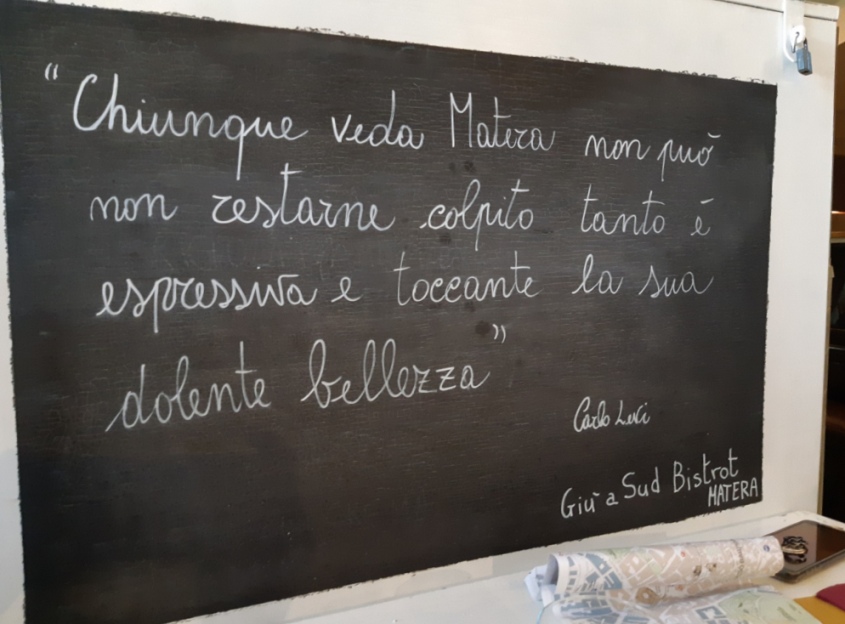 “Chiunque veda Matera non può
non restarne colpito tanto è
espressiva e toccante la sua
dolente bellezza”
Carlo Levi
Giù a Sud Bistrot
MATERA